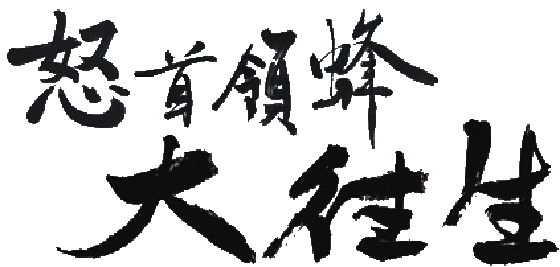 怒首領蜂
大往生